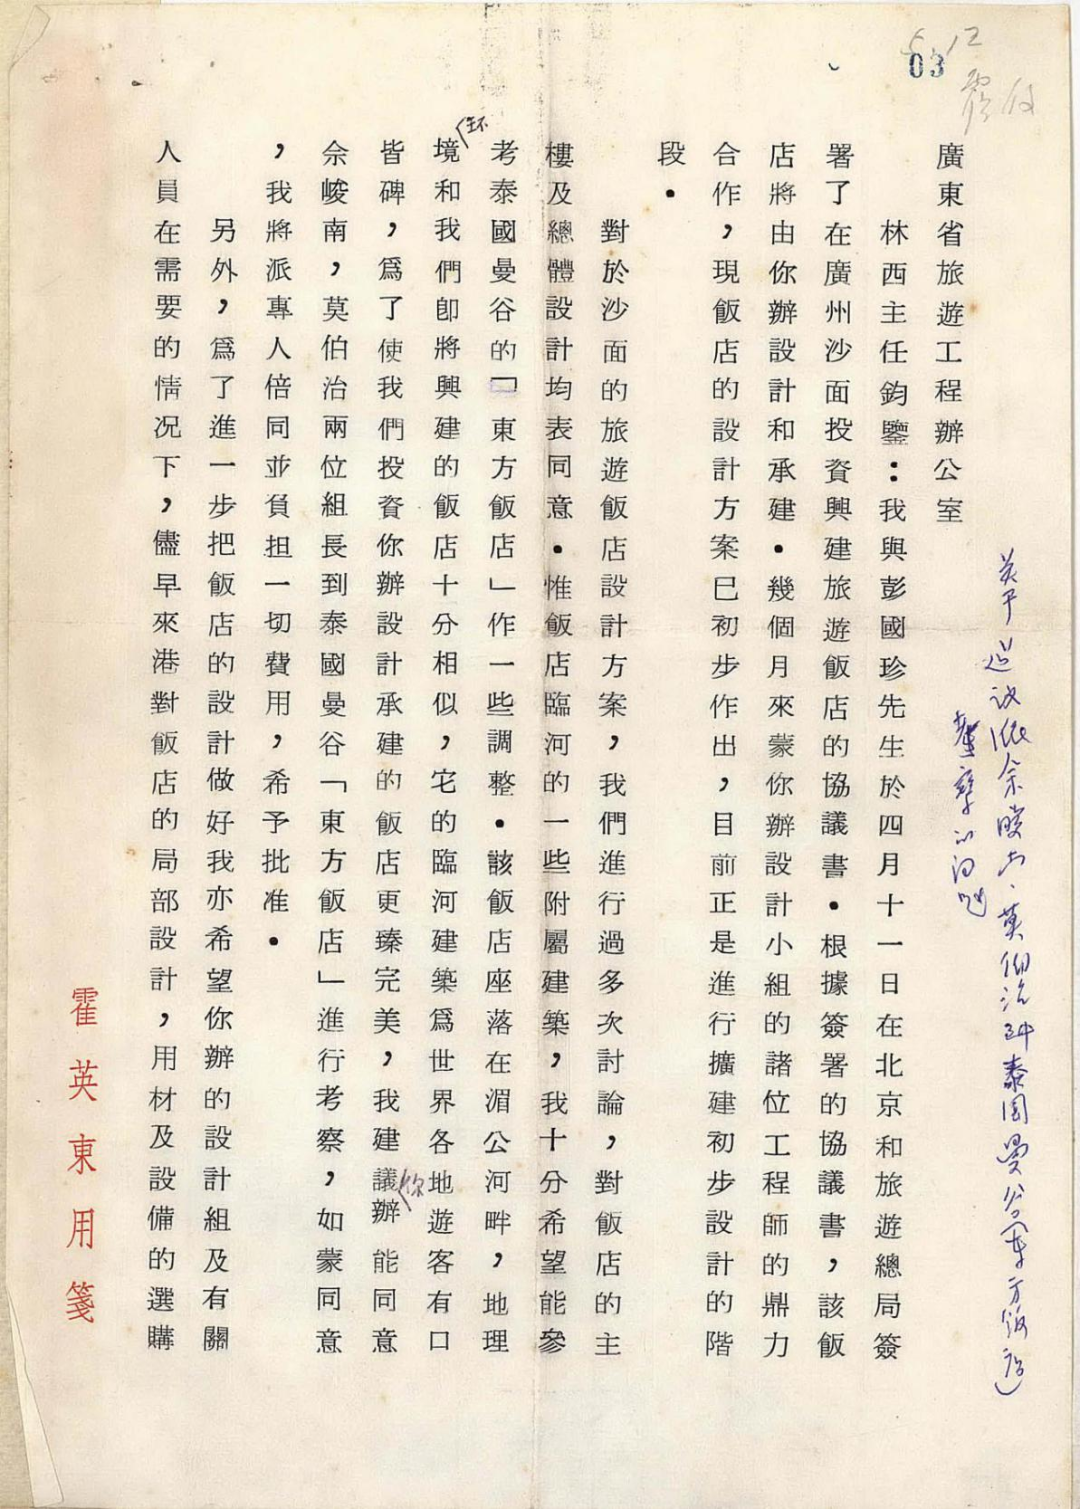 03
廣東省旅遊工程辦公室
林西主任鈞鑒：我與彭國珍先生於四月十一日在北京和旅遊總局簽
署了在廣州沙面投資興建旅遊飯店的協議書．根據簽署的協議書，該飯
店將由你辦設計和承建．幾個月來蒙你辦設計小組的諸位工程師的鼎力
合作，現飯店的設計方案已初步作出，目前正是進行擴建初步設計的階
段．
對於沙面的旅遊飯店設計方案，我們進行過多次討論，對飯店的主
樓及總體設計均表同意．惟飯店臨河的一些附屬建築，我十分希望能參
考泰國曼谷的「東方飯店」作一些調整．該飯店座落在湄公河畔，地理
環境和我們即將興建的飯店十分相似，它的臨河建築為世界各地遊客有口
皆碑，為了使我們投資你辦設計承建的飯店更臻完美，我建議你辦能同意
佘峻南，莫伯治兩位組長到泰國曼谷「東方飯店」進行考察，如蒙同意
，我將派專人倍同並負担一切費用，希予批准．
另外，為了進一步把飯店的設計做好我亦希望你辦的設計組及有關
人員在需要的情況下，儘早來港對飯店的局部設計，用材及設備的選購
霍英東用箋